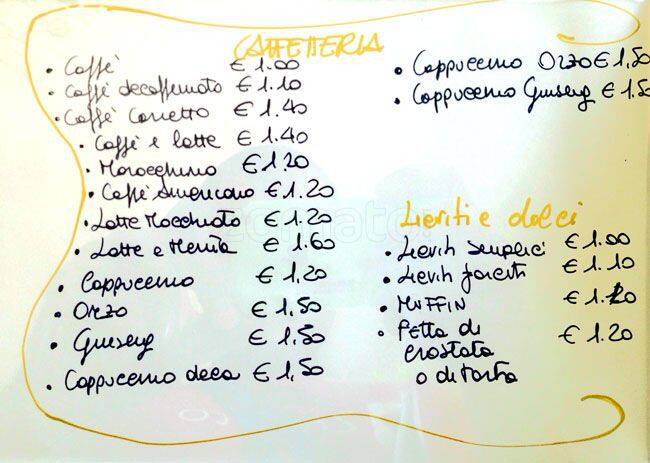 CAFFETTERIA
• Caffè € 1.00
• Caffè decaffeinato € 1.10
• Caffè Corretto € 1.40
• Caffè e latte € 1.40
• Marocchino € 1.20
• Caffè americano € 1.20
• Latte Macchiato € 1.20
• Latte e Menta € 1.60
• Cappuccino € 1,20
• Orzo € 1,50
• Ginseng € 1,50
• Cappuccino deca € 1,50
• Cappuccino Orzo € 1,50
• Cappuccino Ginseng € 1,50
Lieviti e dolci
• Lieviti semplici € 1.00
• Lieviti farciti € 1.10
• MUFFIN € 1.20
• Fetta di € 1.20
crostata
o di torta